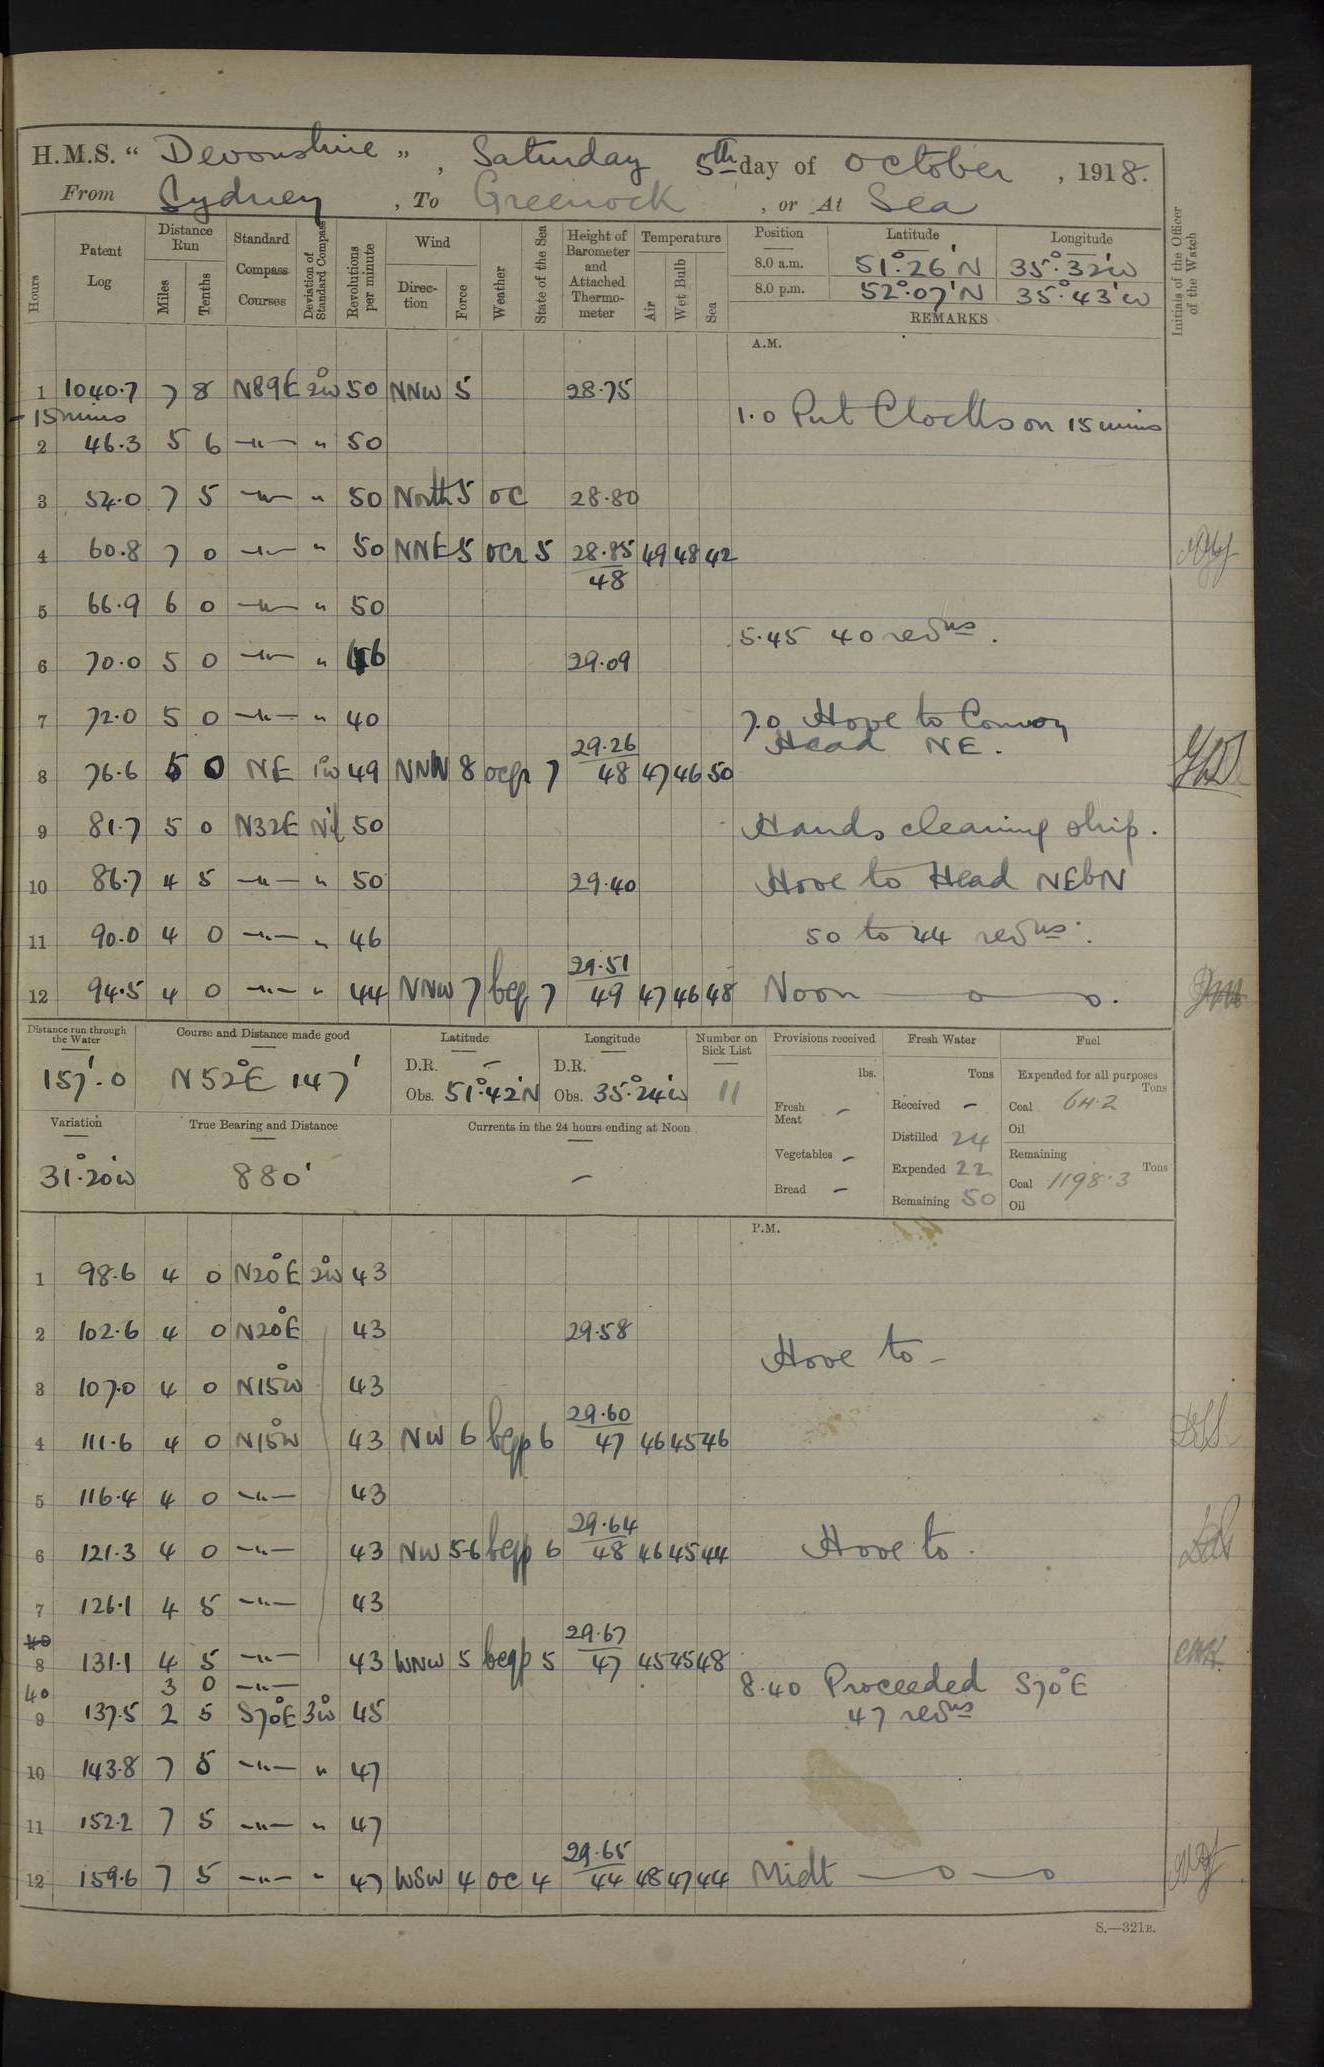 H.M.S. “ Devonshire ” , Saturday 5th day of October , 1918.
From Sydney , To Greenock , or At Sea
Hours
Patent Log
Distance Run
Miles
Tenths
Standard Compass Courses
Deviation of Standard Compass
Revolutions per minute
Wind
Direction
Force
Weather
State of the Sea
Height of Barometer and Attached Thermometer
Temperature
Air
Wet Bulb
Sea
Position Latitude Longitude
8.0 a.m. 51°.26'N 35°.32'W
8.0 p.m. 52°.07'N 35°.43'W
REMARKS
Initials of the Officer of the Watch
A.M.
1 1040.7 7 8 N89E 2°W 50 NNW 5 28.75
-15 mins 1.0 Put Clocks on 15 mins
2 46.3 5 6 —"— " 50
3 54.0 7 5 —"— " 50 North 5 oc 28.80
4 60.8 7 0 —"— " 50 NNE 5 ocr 5 28.85 49 48 42
48
5 66.9 6 0 —"— " 50
5.45 40 revns.
6 70.0 5 0 —"— " 46 29.09
7 72.0 5 0 —"— " 40 7.0 Hove to Convoy
Head NE.
29.26
8 76.6 5 0 NE 1°W 49 NNW 8 ocqr 7 48 47 46 50
9 81.7 5 0 N32E Nil 50 Hands cleaning ship.
10 86.7 4 5 —"— " 50 29.40 Hove to Head NEbN
11 90.0 4 0 —"— " 46 50 to 44 revns.
29.51
12 94.5 4 0 —"— " 44 NNW 7 bcq 7 49 47 46 48 Noon —o—o.
Distance run through the Water
157'.0
Course and Distance made good
N52°E 147'
Latitude
D.R. –
Obs. 51°.42'N
Longitude
D.R.
Obs. 35°.24'W
Number on Sick List
11
Provisions received
lbs.
Fresh Meat –
Vegetables –
Bread –
Fresh Water
Tons
Received –
Distilled 24
Expended 22
Remaining 50
Fuel
Expended for all purposes
Tons
Coal 64.2
Oil
Remaining
Tons
Coal 1198.3
Oil
Variation
31°.20'W
True Bearing and Distance
880'
Currents in the 24 hours ending at Noon
–
P.M.
1 98.6 4 0 N20°E 2°W 43
2 102.6 4 0 N20°E 43 29.58
Hove to –
3 107.0 4 0 N15°W 43
29.60
4 111.6 4 0 N15°W 43 NW 6 bcqp 6 47 46 45 46
5 116.4 4 0 —"— 43
29.64
6 121.3 4 0 —"— 43 NW 5-6 bcqp 6 48 46 45 44 Hove to.
7 126.1 4 5 —"— 43
40 29.67
8 131.1 4 5 —"— 43 WNW 5 bcqp 5 47 45 45 48
40 3 0 —"— 8.40 Proceeded S70°E
9 137.5 2 5 S70°E 3°W 45 47 revns
10 143.8 7 5 —"— " 47
11 152.2 7 5 —"— " 47
29.65
12 159.6 7 5 —"— " 47 WSW 4 oc 4 44 48 47 44 Midt —o—o
S.—321B.